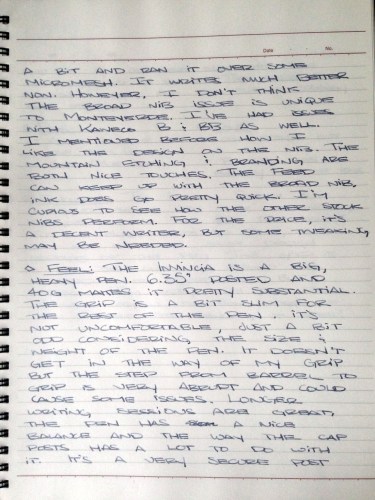 Date No.
A BIT AND RAN IT OVER SOME
MICROMESH. IT WRITES MUCH BETTER
NOW. HOWEVER, I DON'T THINK
THE BROAD NIB ISSUE IS UNIQUE
TO MONTEVERDE. I'VE HAD
WITH KAWECO B & BB AS WELL.
I MENTIONED BEFORE HOW I
LIKE THE DESIGN ON THE NIB. THE
MOUNTAIN ETCHING & BRANDING ARE
BOTH NICE TOUCHES. THE FEED
CAN KEEP UP WITH THE BROAD NIB,
INK DOES GO PRETTY QUICK. I'M
CURIOUS TO SEE HOW THE OTHER STOCK
NIBS PERFORM. FOR THE PRICE, IT'S
A DECENT WRITER, BUT SOME TWEAKING
MAY BE NEEDED.
FEEL: THE INVINCIA IS A BIG,
HEAVY PEN. 6.35" POSTED AND
40G MAKES IT PRETTY SUBSTANTIAL.
THE GRIP IS A BIT SLIM FOR
THE REST OF THE PEN. IT'S
NOT UNCOMFORTABLE, JUST A BIT
ODD CONSIDERING THE SIZE &
WEIGHT OF THE PEN. IT DOESN'T
GET IN THE WAY OF MY GRIP
BUT THE STEP FROM BARREL TO
GRIP IS VERY ABRUPT AND COULD
CAUSE SOME ISSUES. LONGER
WRITING SESSIONS ARE GREAT,
THE PEN HAS A NICE
BALANCE AND THE WAY THE CAP
POSTS HAS A LOT TO DO WITH
IT. IT'S A VERY SECURE POST